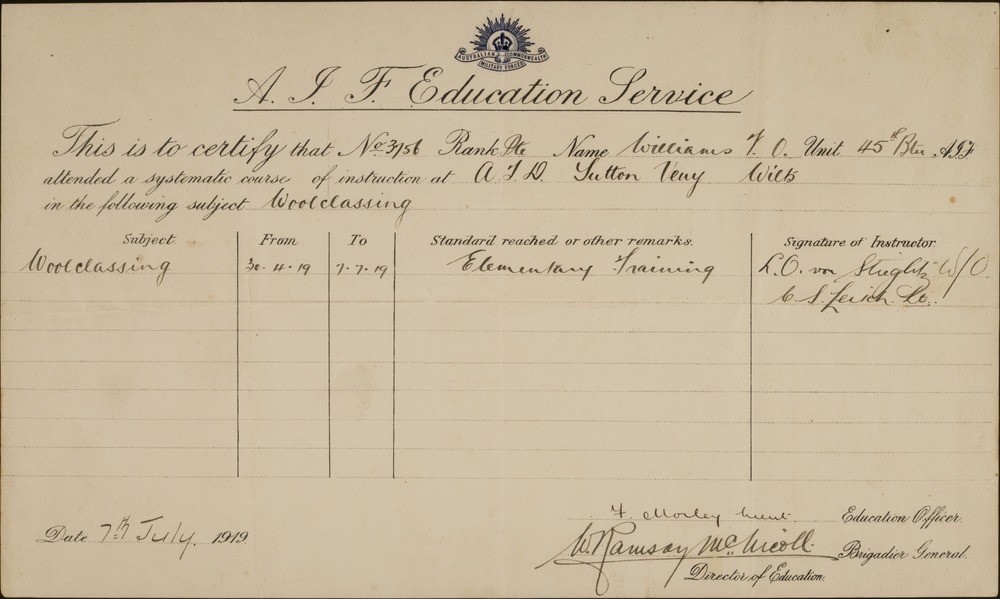 AUSTRALIAN COMMONWEALTH
MILITARY FORCES
A. I. F. Education Service
This is to certify that No 3156 Rank Pte Name Williams F. O. Unit 45th Btn A.I.F.
attended a systematic course of instruction at A. I. D. Sutton Veny Wilts
in the following subject Woolclassing
Subject. From To Standard reached or other remarks. Signature of Instructor.
Woolclassing 30.4.19 7.7.19 Elementary Training L. O. von Stieglitz W/O.
C. S.
Date 7th July. 1919
F. Morley Education Officer.
W. Ramsay McNicoll. Brigadier General.
Director of Education.